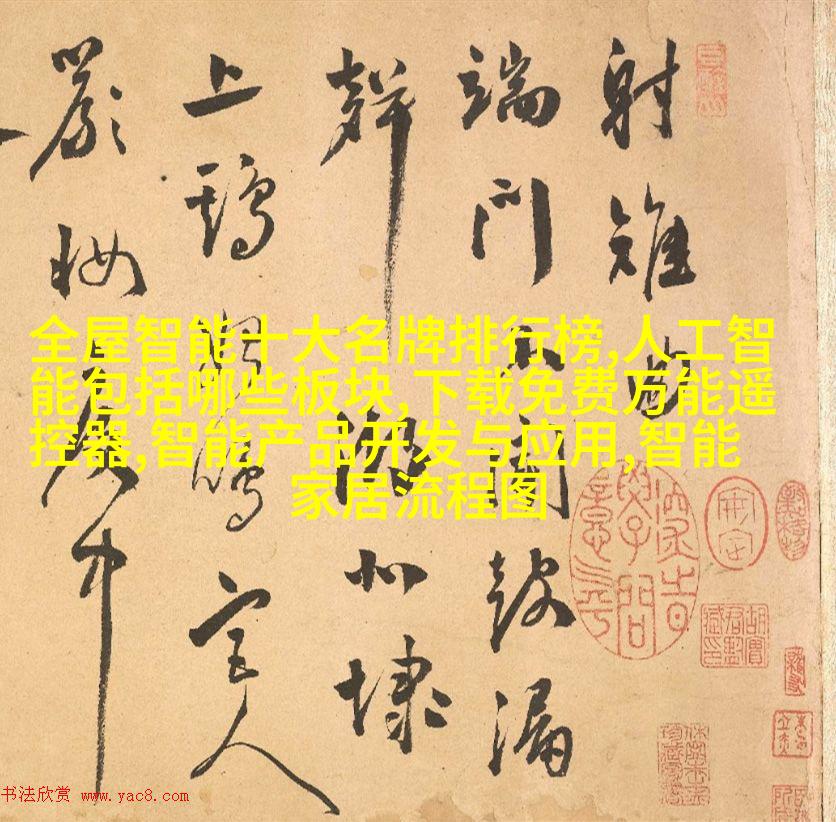 射雉
端門不聞鼓漏
聲 湖北埭
上鷄 鳴宮人
嚴妝 中
全屋智能十大名牌排行榜,人工智
能包括哪些板块,下载免费万能遥
控器,智能产品开发与应用,智能
家居流程图
书法欣赏 www.yac8.com